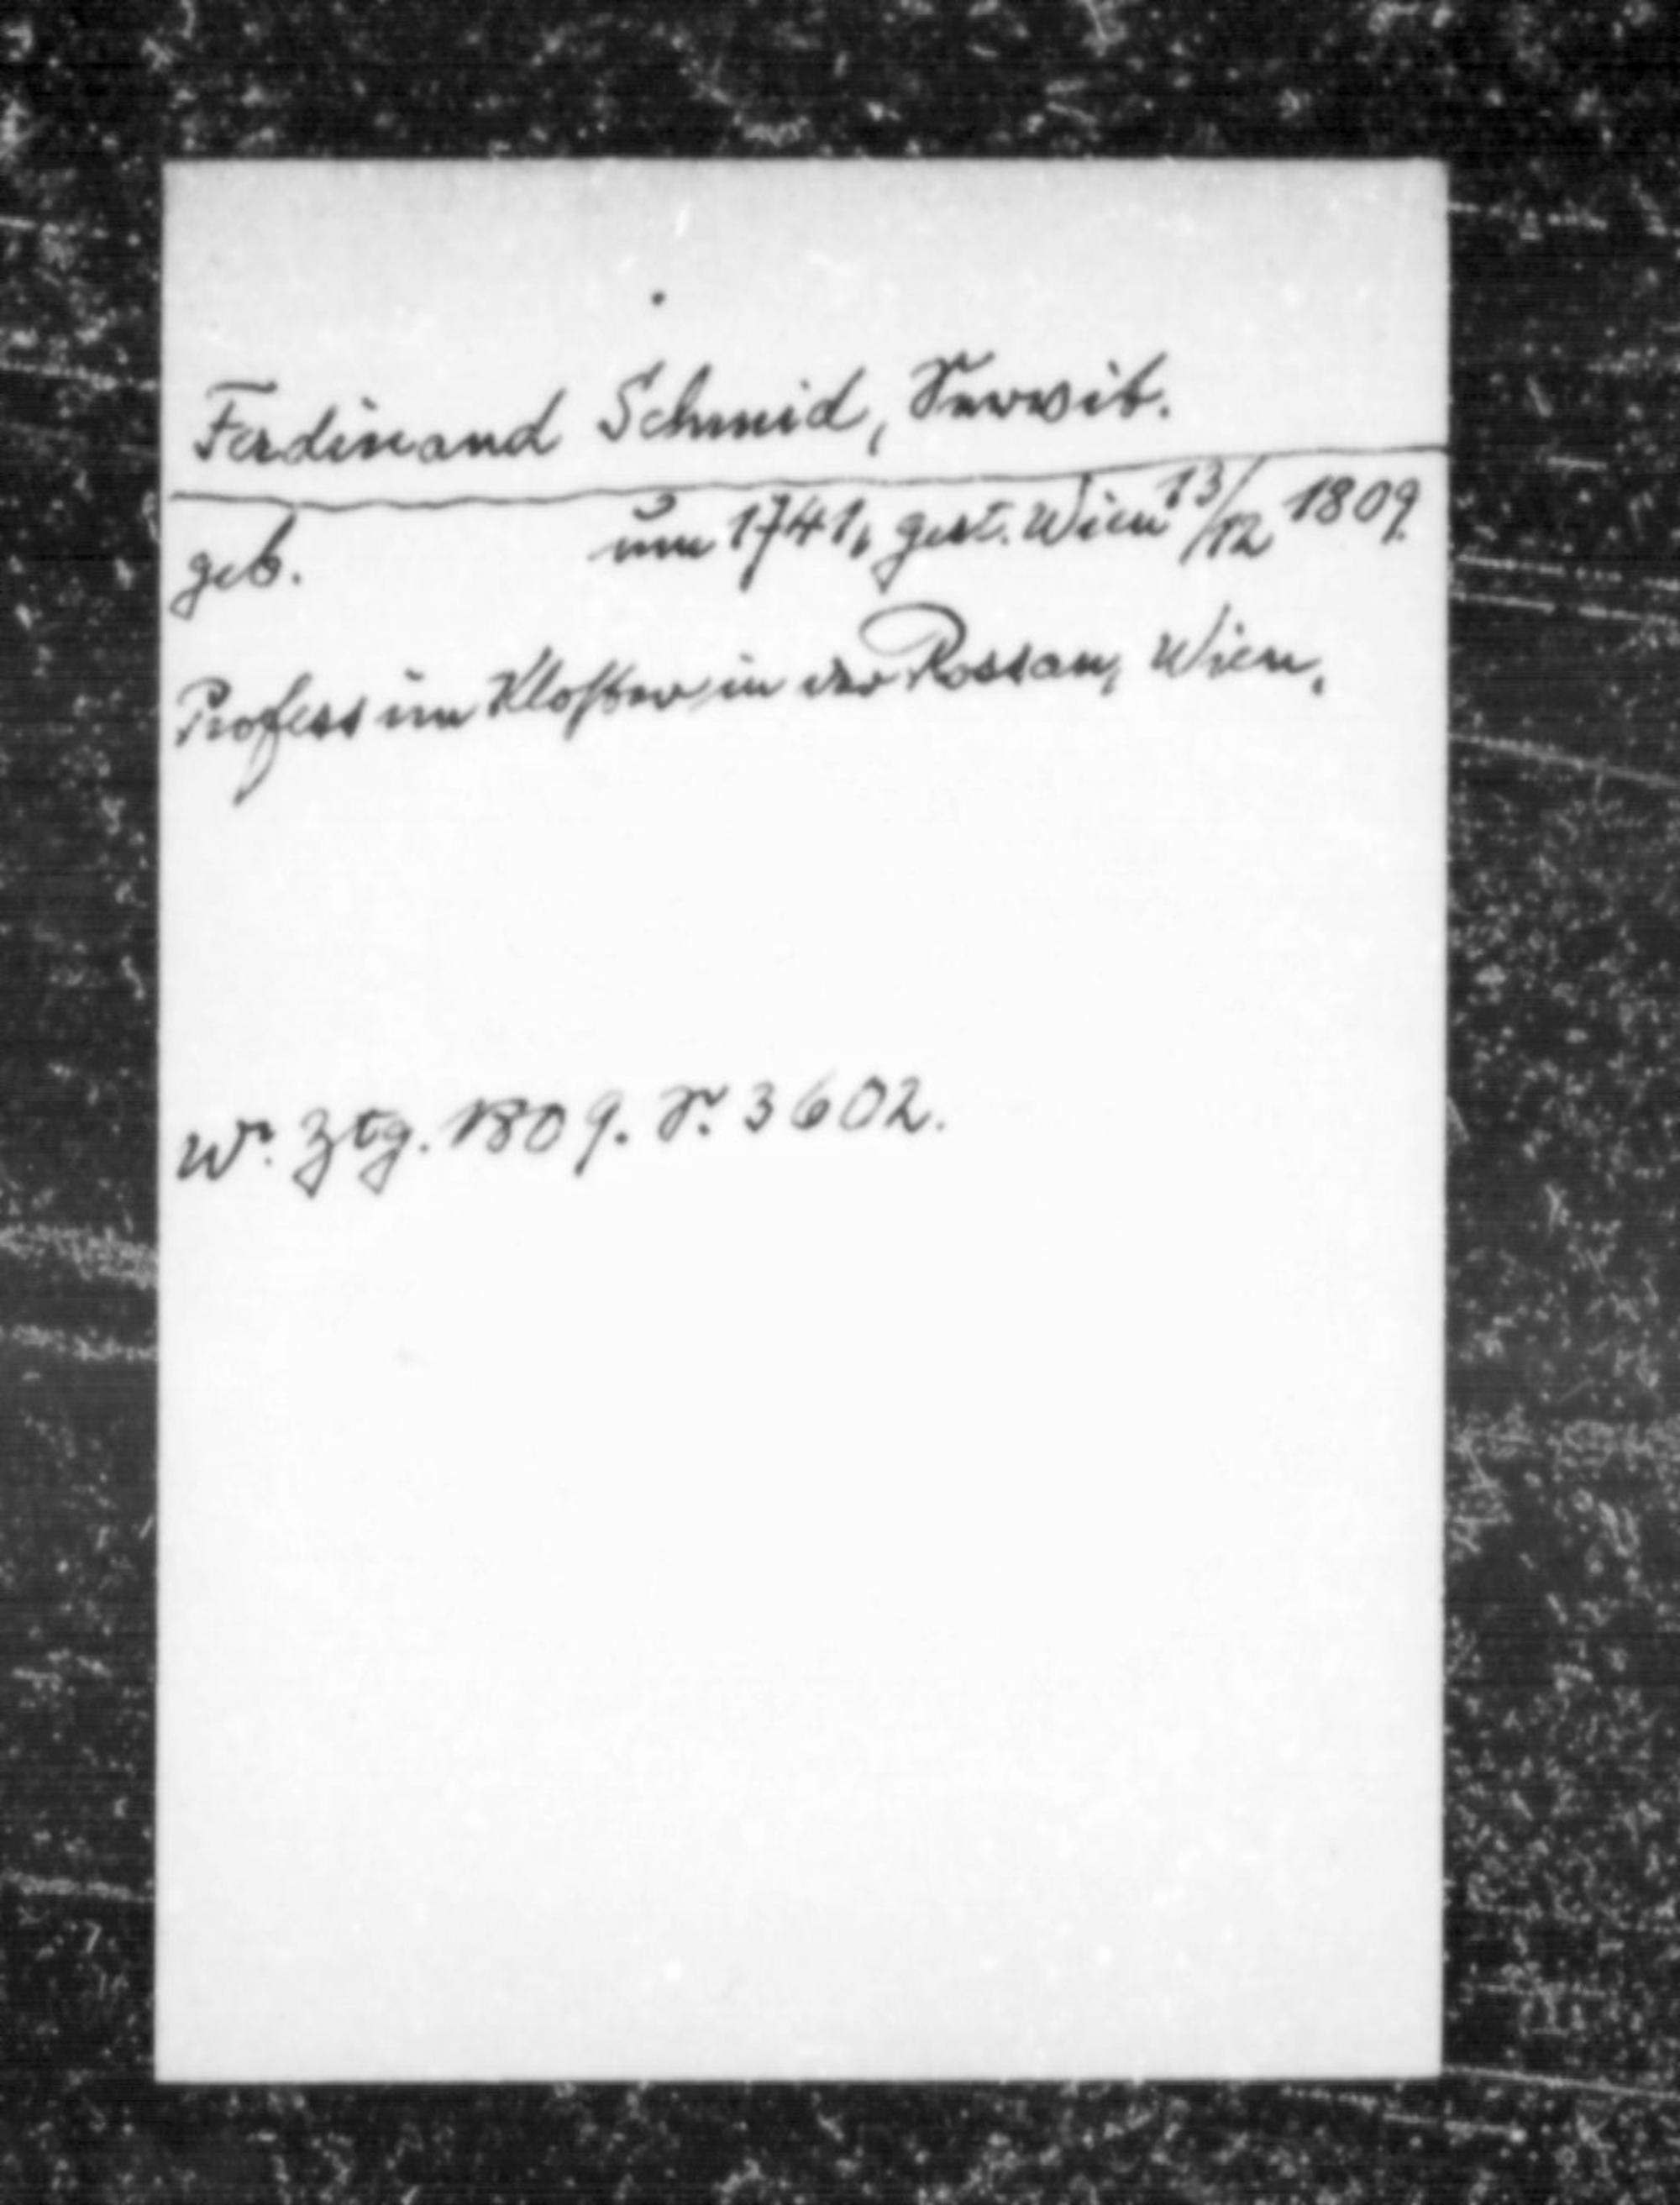 Ferdinand Schmid, Servit.
geb. um 1741, gest. Wien 13/12 1809.
Profess im Kloster in der Rossau, Wien.
Wr. Ztg. 1809. S. 3602.